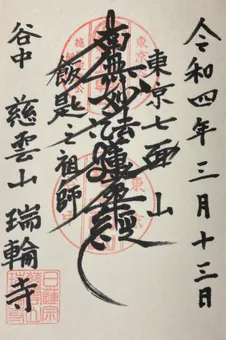 令和四年三月十三日
東京七面山
南無妙法蓮華経
飯匙之祖師
谷中 慈雲山 瑞輪寺